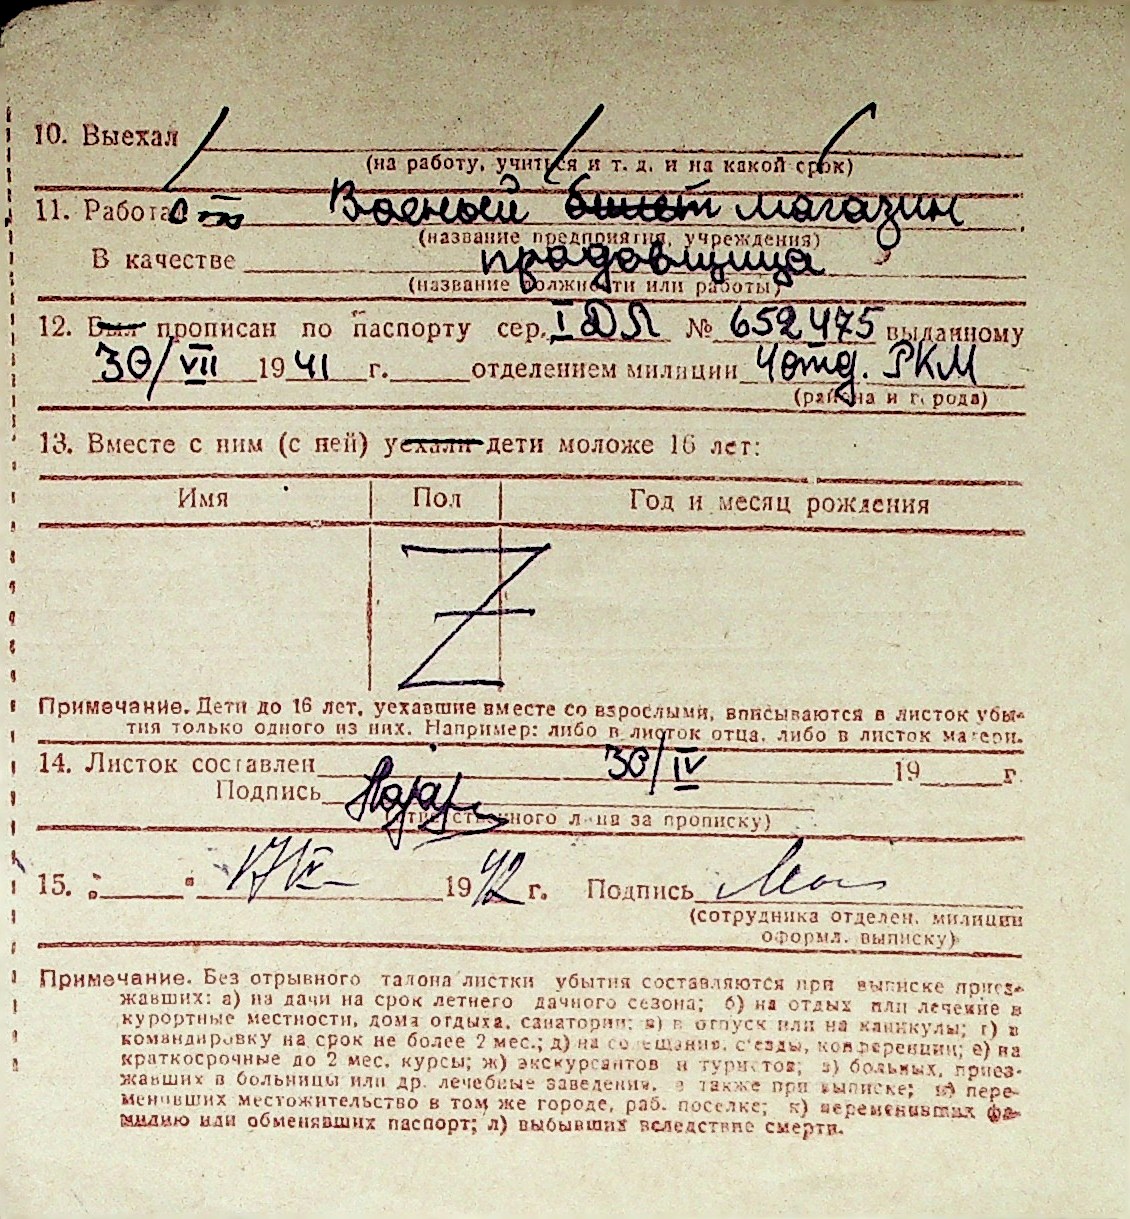 10. Выехал
(на работу, учиться и т. д. и на какой срок)
11. Работа Военый билет магазин
(название предприятия, учреждения)
В качестве продовщица
(название должности или работы)
12. Был прописан по паспорту сер. I ДЛ № 652475 выданному
30/VII 1941 г. отделением милиции 4 отд. РКМ
(района и города)
13. Вместе с ним (с ней) уехали дети моложе 16 лет:
Имя Пол Год и месяц рождения
Z
Примечание. Дети до 16 лет, уехавшие вместе со взрослыми, вписываются в листок убы-
тия только одного из них. Например: либо в листок отца, либо в листок матери.
14. Листок составлен 30/IV 19 г.
Подпись
(ответственного лица за прописку)
15. „ " 1942 г. Подпись
(сотрудника отделен. милиции
оформл. выписку)
Примечание. Без отрывного талона листки убытия составляются при выписке приез-
жавших: а) на дачи на срок летнего дачного сезона; б) на отдых или лечение в
курортные местности, дома отдыха, санатории; в) в отпуск или на каникулы; г) в
командировку на срок не более 2 мес.; д) на совещания, с'езды, конференции; е) на
краткосрочные до 2 мес. курсы; ж) экскурсантов и туристов; з) больных, приез-
жавших в больницы или др. лечебные заведения, а также при выписке; и) пере-
менивших местожительство в том же городе, раб. поселке; к) переменивших фа-
милию или обменявших паспорт; л) выбывших вследствие смерти.